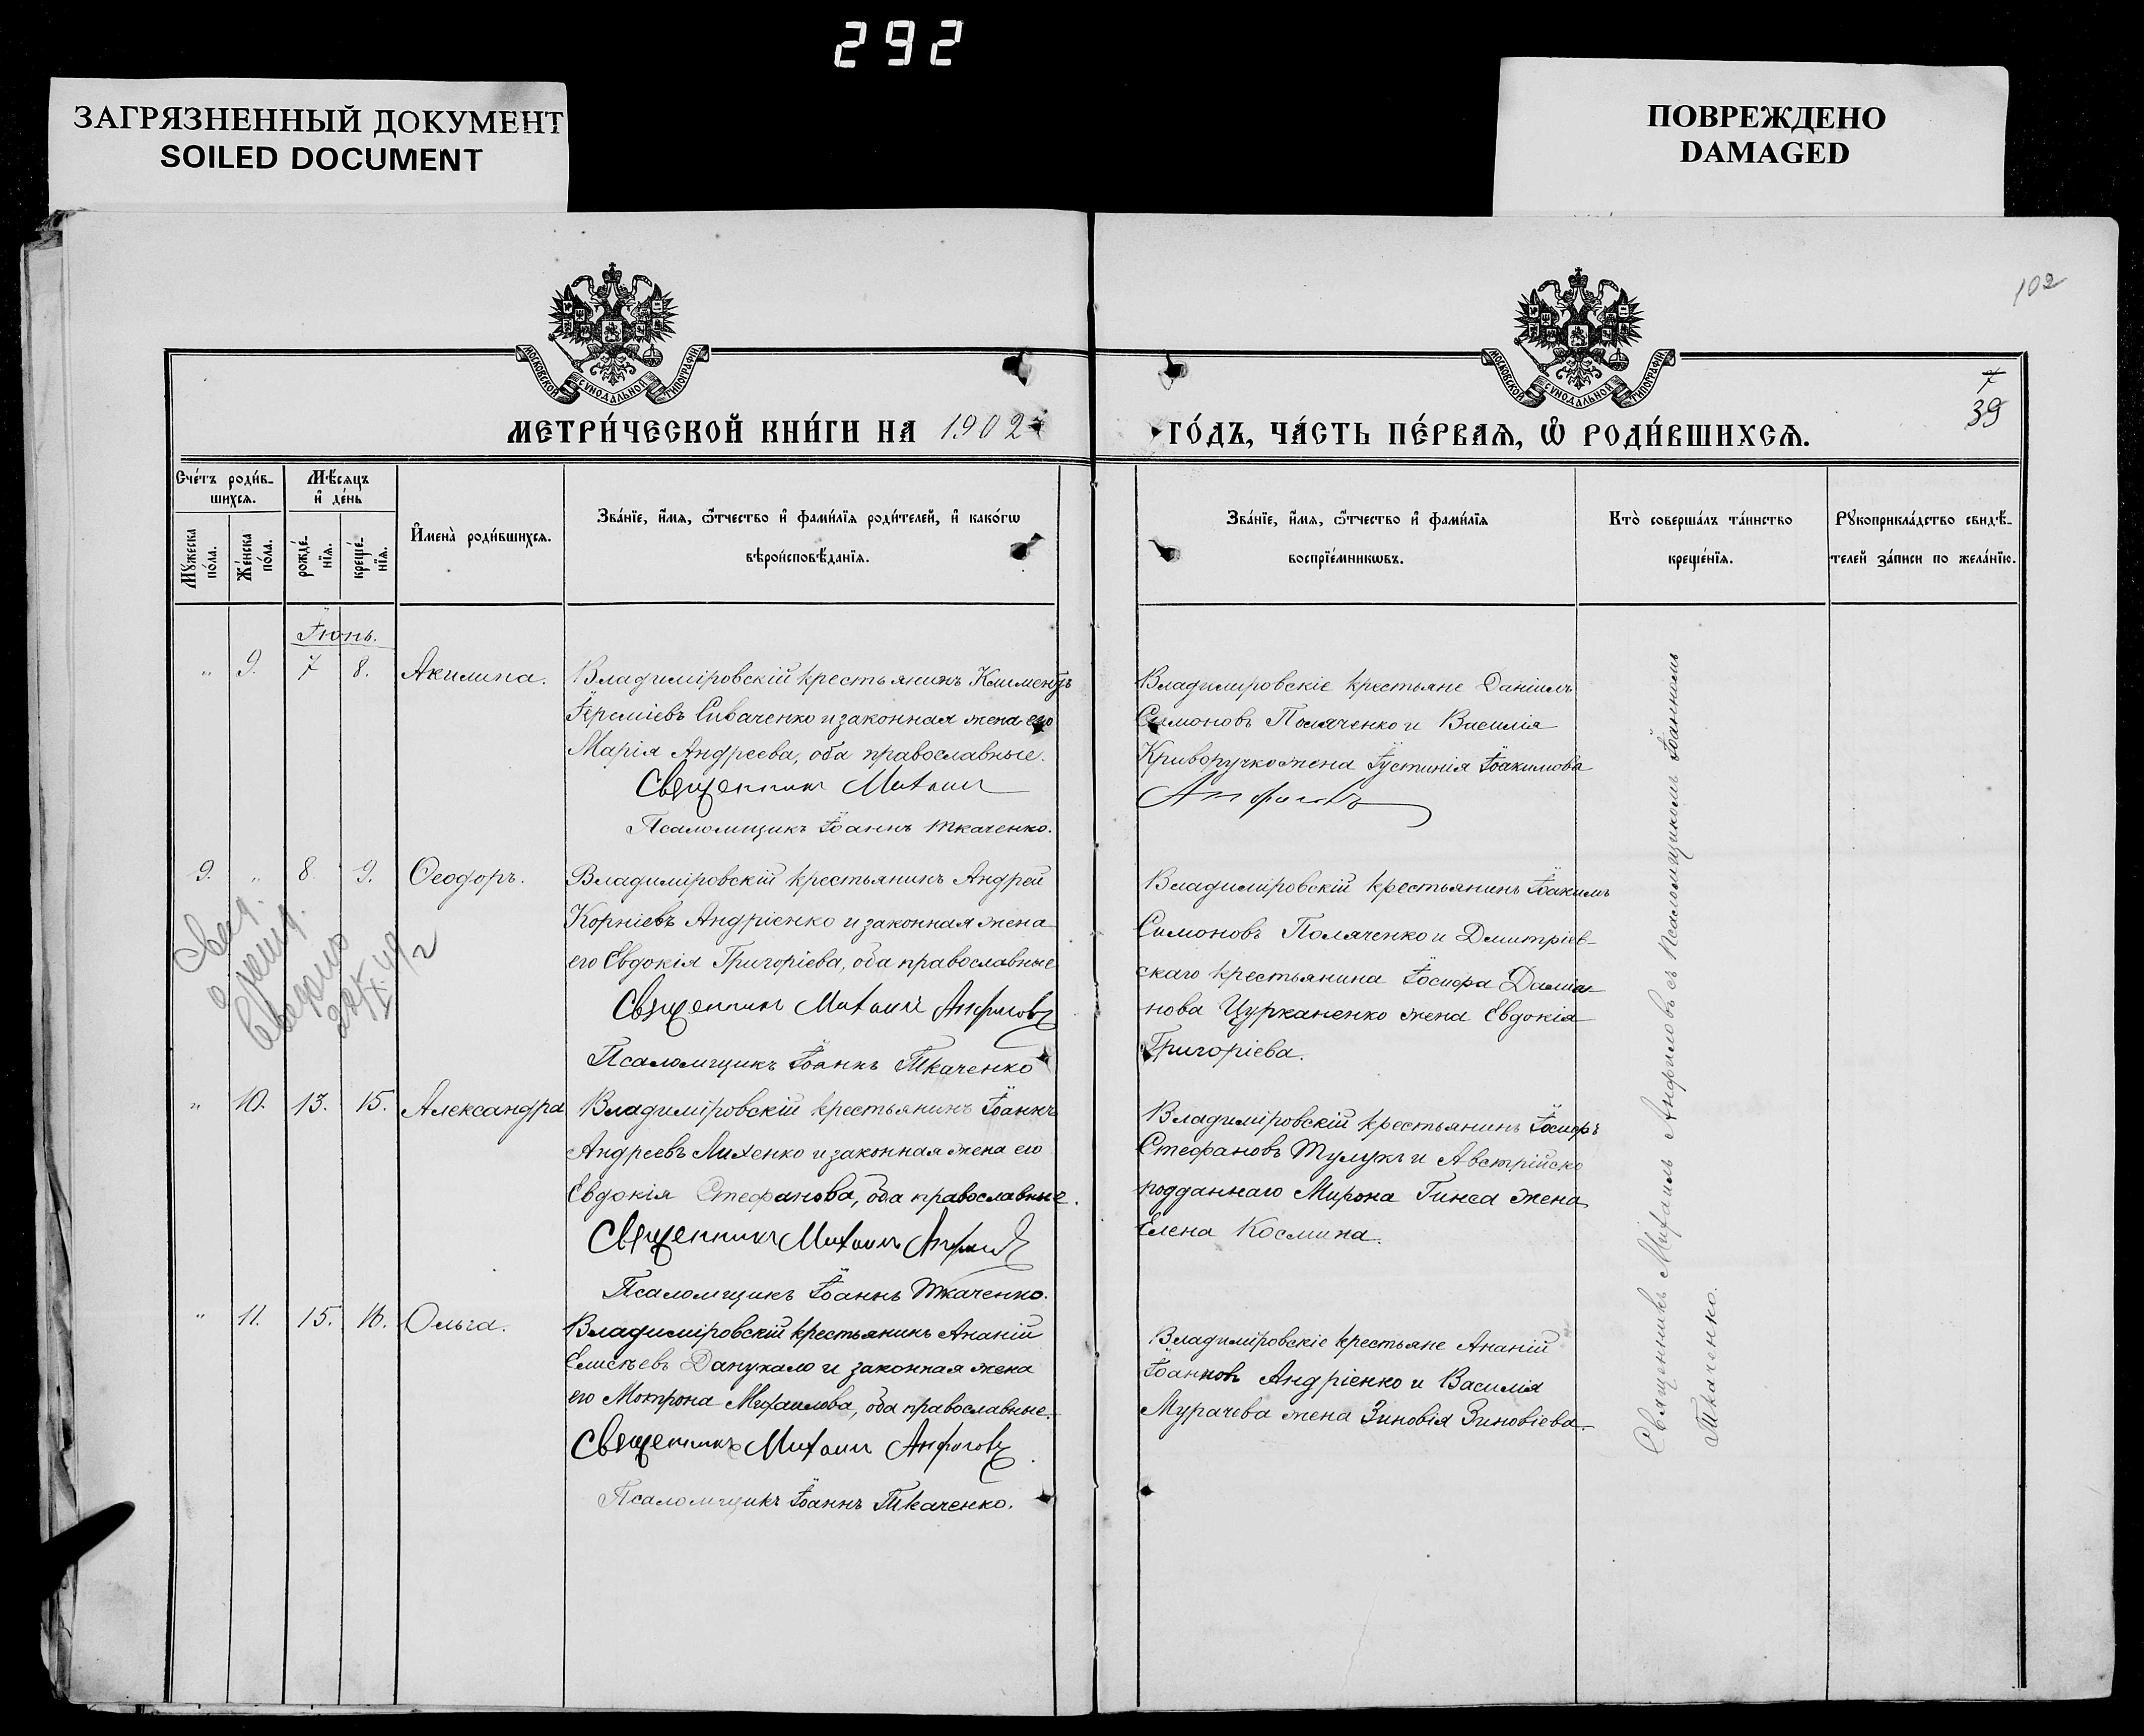 292
ЗАГРЯЗНЕННЫЙ ДОКУМЕНТ
SOILED DOCUMENT
ПОВРЕЖДЕНО
DAMAGED
102
МОСКОВСКОЙ СУНОДАЛЬНОЙ ТИПОГРАФІИ
МОСКОВСКОЙ СУНОДАЛЬНОЙ ТИПОГРАФІИ
7
39
МЕТРИ́ЧЕСКОЙ КНИ́ГИ НА 1902
ГО́ДЪ, ЧА́СТЬ ПЕ́РВАѦ, Ѿ РОДИ́ВШИХСѦ.
Сче́тъ роди́в-
шихсѧ.
Мѣ́сѧцъ
и҆ де́нь
Мꙋжеска
по́ла.
Же́нска
по́ла.
рожде́-
нїѧ.
креще́-
нїѧ.
И҆мена̀ роди́вшихсѧ.
Зва́нїе, и҆́мѧ, ѻ҆́тчество и҆ фами́лїѧ роди́телей, и҆ како́гѡ
вѣроисповѣ́данїѧ.
Зва́нїе, и҆́мѧ, ѻ҆́тчество и҆ фами́лїѧ
воспрїе́мникѡвъ.
Кто̀ соверша́лъ та́инство
креще́нїѧ.
Рꙋкоприкла́дство свидѣ́-
телей за́писи по жела́нїю.
Іюнь.
" 9. 7 8. Акилина.
Владимiровскiй крестьянинъ Климентъ
Iеремiевъ Сиваченко и законная жена его
Марiя Андреева, оба православные.
Священникъ Михаилъ
Псаломщикъ Iоаннъ Ткаченко.
Владимiровскiе крестьяне Данiилъ
Симоновъ Поляченко и Василiя
Криворучко жена Iустинiя Iоакимова
Анфиловъ
9. " 8. 9. Ѳеодоръ.
Владимiровскiй крестьянинъ Андрей
Корнiевъ Андрiенко и законная жена
его Евдокiя Григорiева, оба православные
Священникъ Михаилъ Анфиловъ
Псаломщикъ Iоаннъ Ткаченко
Владимiровскiй крестьянинъ Iоакимъ
Симоновъ Поляченко и Дмитрiев-
скаго крестьянина Iосифа Дамiа-
нова Цурканенко жена Евдокiя
Григорiева.
" 10. 13. 15. Александра
Владимiровскiй крестьянинъ Iоаннъ
Андреевъ Михенко и законная жена его
Евдокiя Стефанова, оба православные.
Священникъ Михаилъ Анфиловъ
Псаломщикъ Iоаннъ Ткаченко.
Владимiровскiй крестьянинъ Iосифъ
Стефановъ Тулукъ и Австрiйско
подданнаго Мирона Гинса жена
Елена Космина.
" 11. 15. 16. Ольга.
Владимiровскiй крестьянинъ Ананiй
Елисѣевъ Данукало и законная жена
его Мотрона Михаилова, оба православные.
Священникъ Михаилъ Анфиловъ
Псаломщикъ Iоаннъ Ткаченко.
Владимiровскiе крестьяне Ананiй
Iоанновъ Андрiенко и Василiя
Мурачева жена Зиновiя Зиновiева.
Священникъ Михаилъ Анфиловъ съ псаломщикомъ Iоанномъ
Ткаченко.